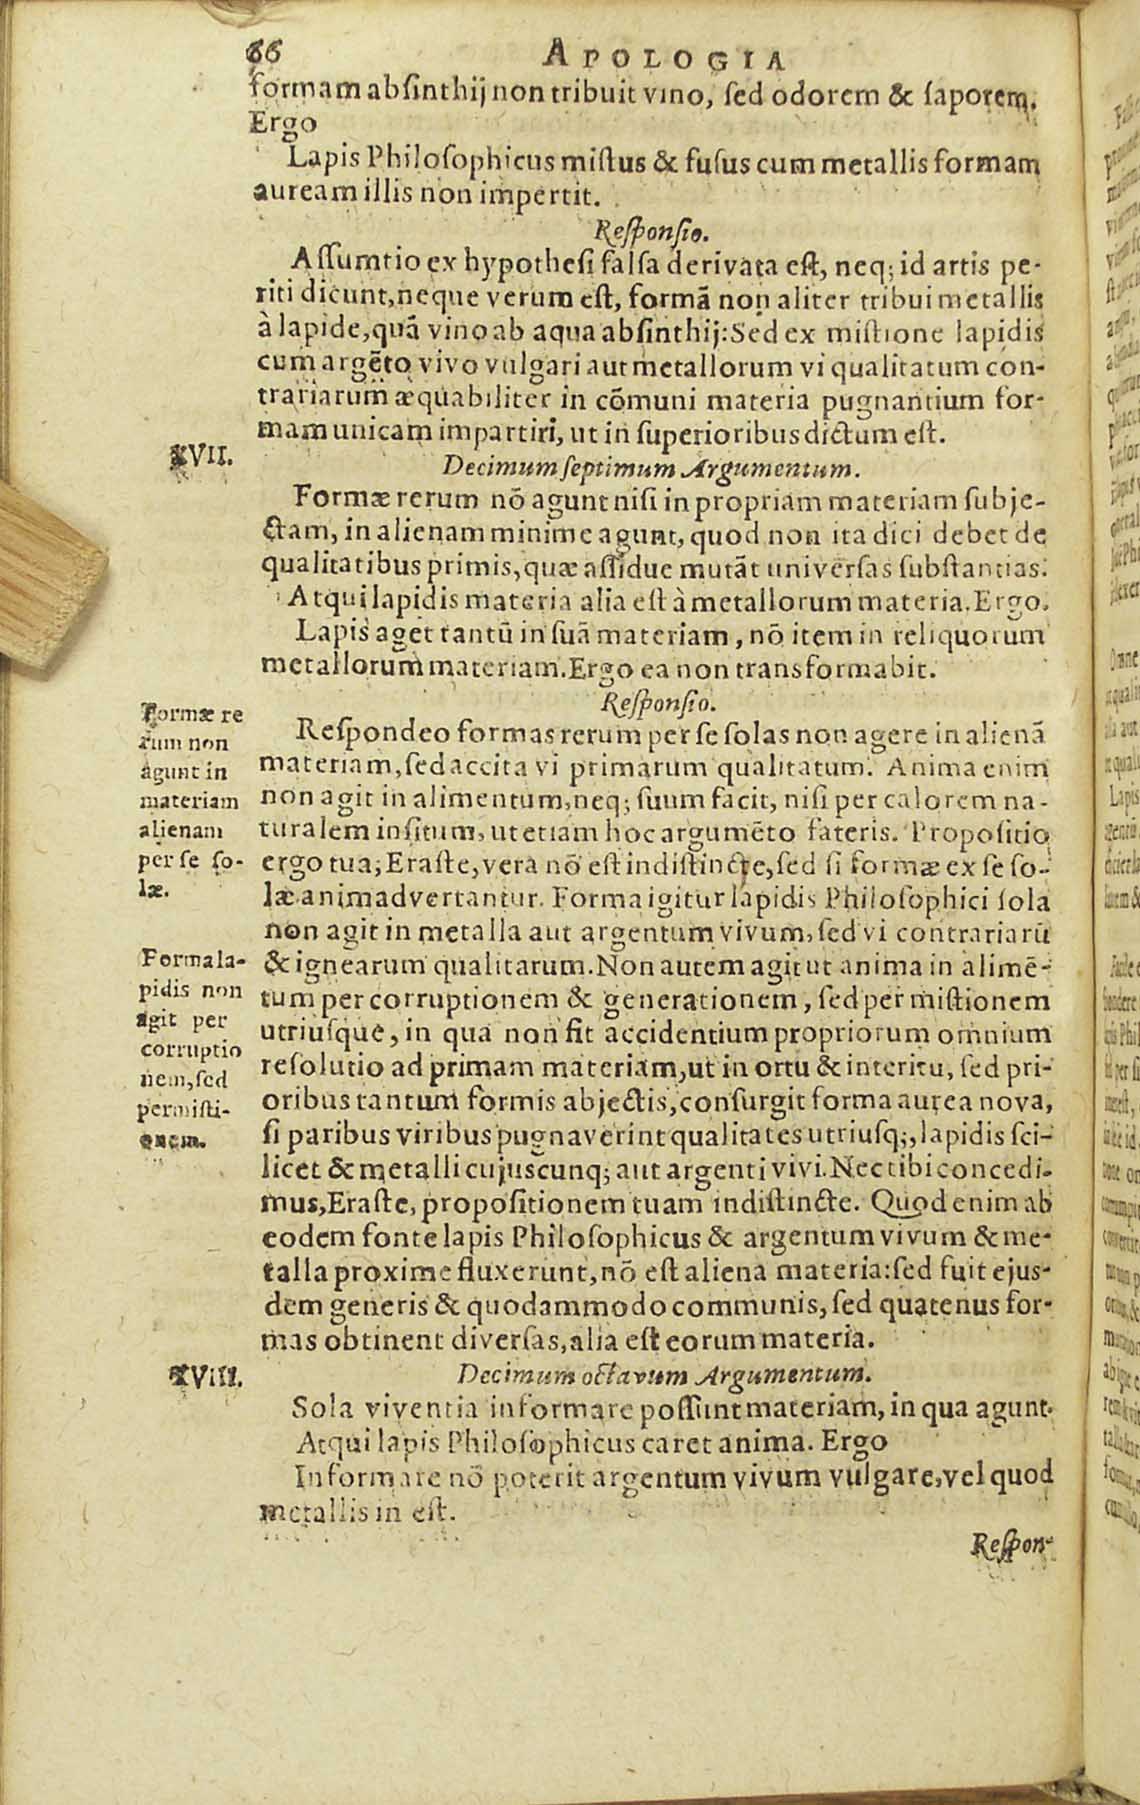 66 APOLOGIA
formam absinthij non tribuit vino, sed odorem & saporem.
Ergo
Lapis Philosophicus mistus & fusus cum metallis formam
auream illis non impertit.
Responsio.
Assumtio ex hypothesi falsa derivata est, neq; id artis pe-
riti dicunt, neque verum est, formã non aliter tribui metallis
à lapide, quã vino ab aqua absinthij: Sed ex mistione lapidis
cum argẽto vivo vulgari aut metallorum vi qualitatum con-
trariarum æquabiliter in cõmuni materia pugnantium for-
mam unicam impartiri, ut in superioribus dictum est.
XVII.
Decimum septimum Argumentum.
Formæ rerum nõ agunt nisi in propriam materiam subje-
ctam, in alienam minime agunt, quod non ita dici debet de
qualitatibus primis, quæ assidue mutãt universas substantias.
Atqui lapidis materia alia est à metallorum materia. Ergo.
Lapis aget tantũ in suã materiam, nõ item in reliquorum
metallorum materiam. Ergo ea non transformabit.
Responsio.
Formæ re
rum non
agunt in
materiam
alienam
per se so-
læ.
Respondeo formas rerum per se solas non agere in alienã
materiam, sed accita vi primarum qualitatum. Anima enim
non agit in alimentum, neq; suum facit, nisi per calorem na-
turalem insitum, ut etiam hoc argumẽto fateris. Propositio
ergo tua, Eraste, vera nõ est indistincte, sed si formæ ex se so-
læ animadvertantur. Forma igitur lapidis Philosophici sola
non agit in metalla aut argentum vivum, sed vi contrariarũ
& ignearum qualitarum. Non autem agit ut anima in alimẽ-
tum per corruptionem & generationem, sed per mistionem
utriusque, in qua non fit accidentium propriorum omnium
resolutio ad primam materiam, ut in ortu & interitu, sed pri-
oribus tantum formis abjectis, consurgit forma aurea nova,
si paribus viribus pugnaverint qualitates utriusq;, lapidis sci-
licet & metalli cujuscunq; aut argenti vivi. Nec tibi concedi-
mus, Eraste, propositionem tuam indistincte. Quod enim ab
eodem fonte lapis Philosophicus & argentum vivum & me-
talla proxime fluxerunt, nõ est aliena materia: sed fuit ejus-
dem generis & quodammodo communis, sed quatenus for-
mas obtinent diversas, alia est eorum materia.
Forma la-
pidis non
agit per
corruptio
nem, sed
per misti-
onem.
XVIII.
Decimum octavum Argumentum.
Sola viventia informare possunt materiam, in qua agunt.
Atqui lapis Philosophicus caret anima. Ergo
Informare nõ poterit argentum vivum vulgare, vel quod
metallis in est.
Respon-